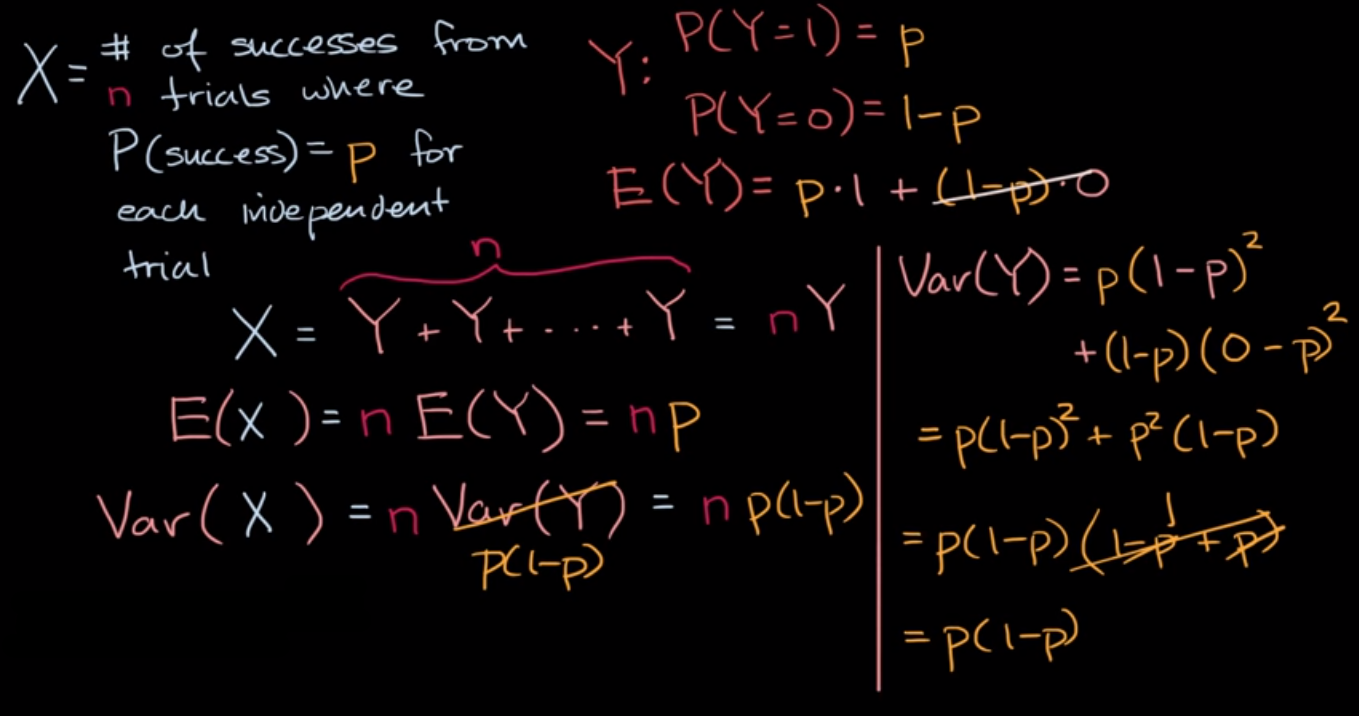 X = # of successes from
n trials where
P(success) = p for
each independent
trial
Y: P(Y=1) = p
P(Y=0) = 1-p
E(Y) = p·1 + (1-p)·0
n
X = Y + Y + ···· + Y = nY
E(X) = n E(Y) = np
Var(X) = n Var(Y) = n p(1-p)
p(1-p)
Var(Y) = p(1-p)²
+(1-p)(0-p)²
= p(1-p)² + p²(1-p)
1
= p(1-p)(1-p+p)
= p(1-p)